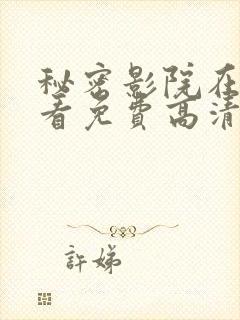 秘密影院在
看免費高清
許娣